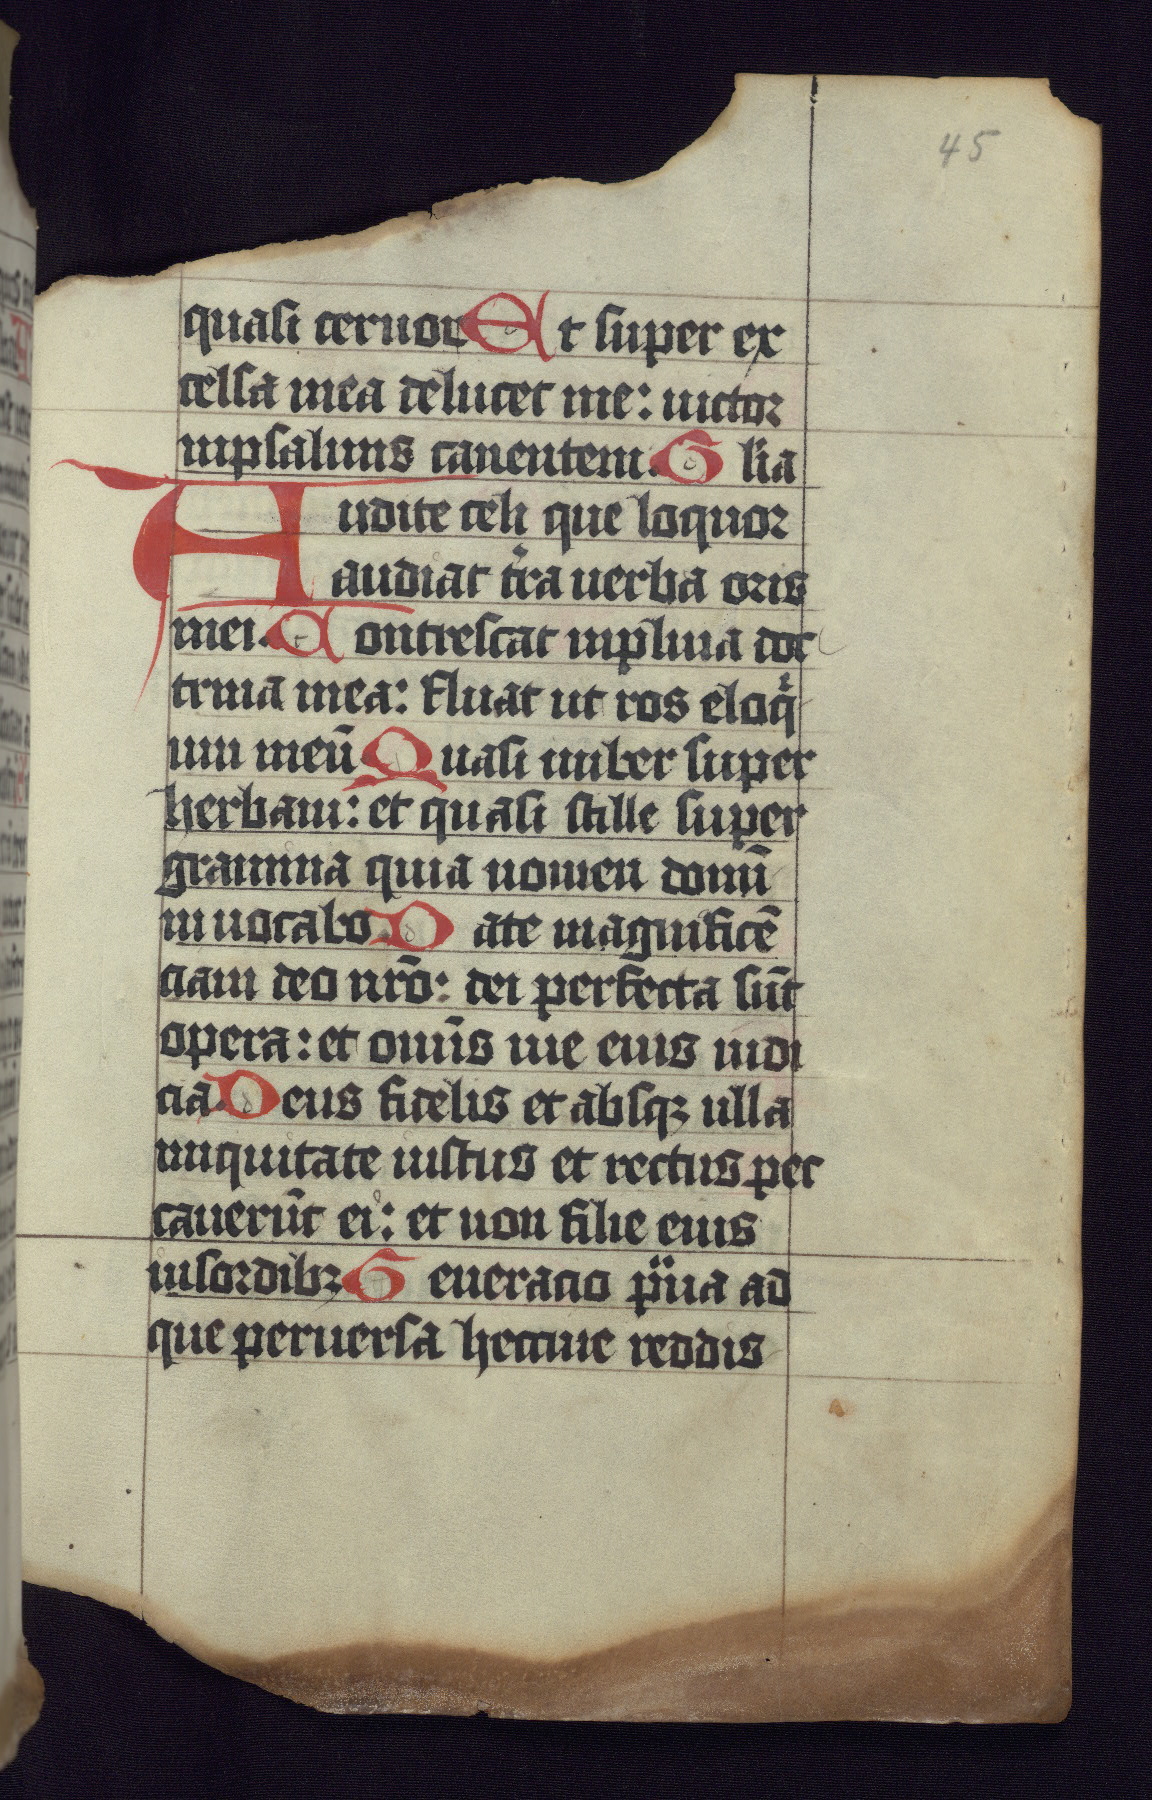 45
quasi ceruor Et super ex
celsa mea deducet me: uictor
inpsalmis canentem. G lia
Audite celi que loquor
audiat tra uerba oris
mei. Concrescat inpluuia doc
trina mea: fluat ut ros eloq
ium meū Quasi imber super
herbam: et quasi stille super
gramina quia nomen domī
inuocabo. Date magnificē
ciam deo nrō: dei perfecta sūt
opera: et omīs uie eius iudi
cia. Deus fidelis et absqꝫ ulla
iniquitate iustus et rectus pec
cauerūt ei: et non filie eius
insordibꝫ Generacio praua ad
que peruersa heccine reddis